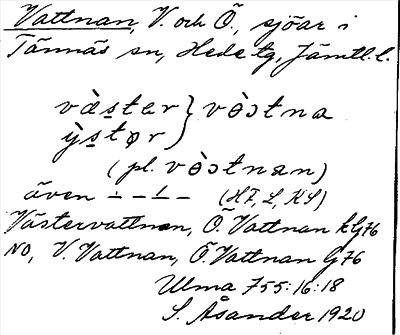 Vattnan, V. och Ö., sjöar i
Tännäs sn, Hede tg, Jämtl. l.
væ̀ster } vòɔtna
ỳstør
(pl. vòɔtnan)
även – – ⊥ – (HF, L, KL)
Västervattnen, Ö. Vattnan kG76
NO, V. Vattnan, Ö. Vattnan G76
Ulma 755:16:18
S. Åsander 1920